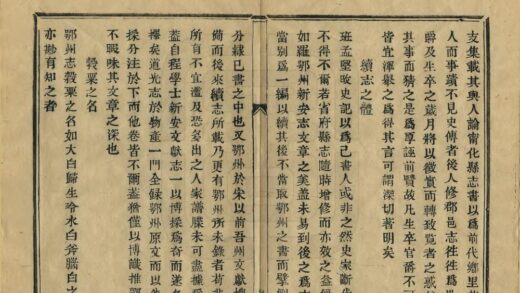 支集載其與人論甯化縣志書以爲前代鄉里
人而事蹟不見史傳者後人修郡邑志徃徃爲
爵及生卒之歲月將以徵實而轉致覽者之惑
其事而猜之是爲厚誣前賢故凡生卒官爵不可
皆宜渾舉之爲得其言可謂深切著明矣
續志之體
班孟堅取史記以爲己書人或非之然史家斷
不得不爾若省府縣志隨時增修而亦效之益
如羅鄂州新安志文章之美蓋未易到後之
當別爲一編以續其後不當取鄂州之書而擘
分綴己書之中也又鄂州於宋以前吾州文獻搜
備而後來續志所載乃更有鄂州所未錄者苟非
所自不宜濫及恐多出之人家譜牒未可盡據
蓋自程學士新安文獻志一以博採爲奇而遂
據矣道光志於物產一門全録鄂州原文而以
採分注於下而他卷皆不爾蓋猶僅以博識推鄂
不暇味其文章之深也
穀粟之名
鄂州志穀粟之名如大白歸生冷水白斧腦白之
亦尠有知之者